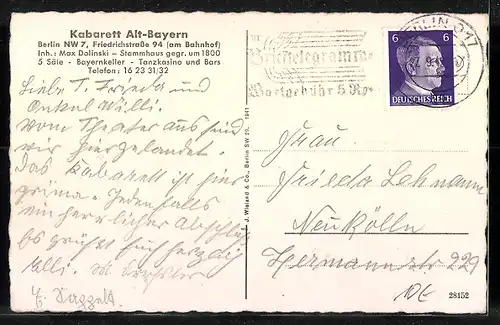 Kabarett Alt-Bayern
Berlin NW 7, Friedrichstraße 94 (am Bahnhof)
Inh.: Max Dolinski - Stammhaus gegr. um 1800
5 Säle - Bayernkeller - Tanzkasino und Bars
Telefon: 16 23 31/32
Liebe T. Frieda und
Onkel Willi.
Vom Theater aus sind
wir hier gelandet.
Das Kabarett ist hier
prima. Jedenfalls
ein herrlicher Abschluß
Es grüßt Euch herzlich
J. Wieland & Co., Berlin SW 29. 1941
Brieftelegramme
Wortgebühr 5 Rpf
BERLIN
6 6
DEUTSCHES REICH
Frau
Frieda Lehmann
Neukölln
Hermannstr 229
28152